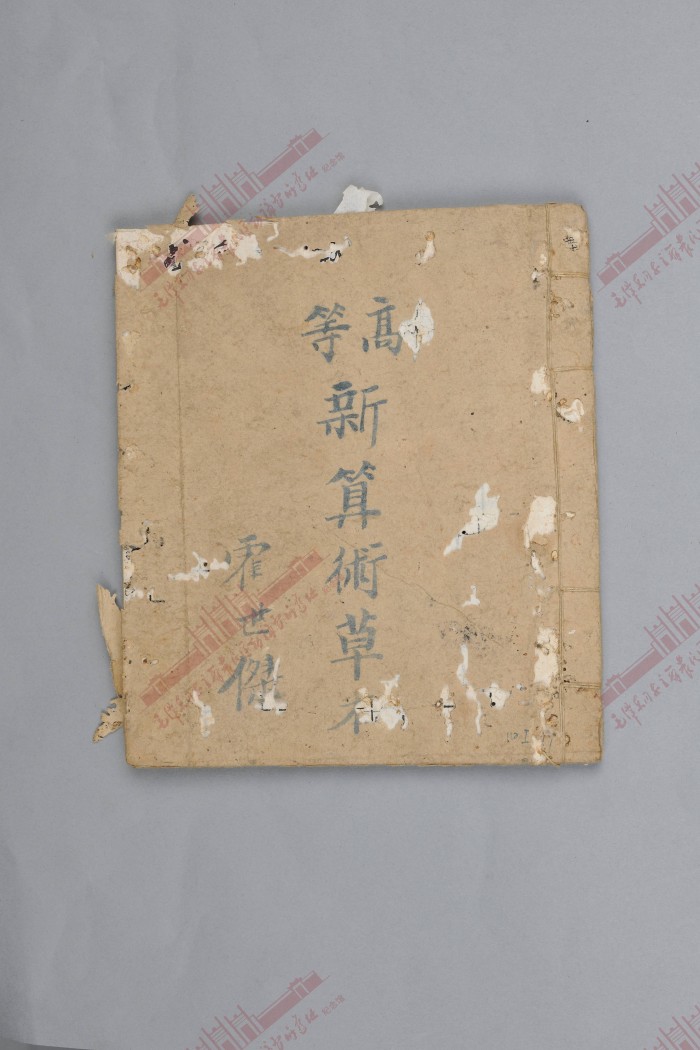 高等
新算術草本
霍世傑